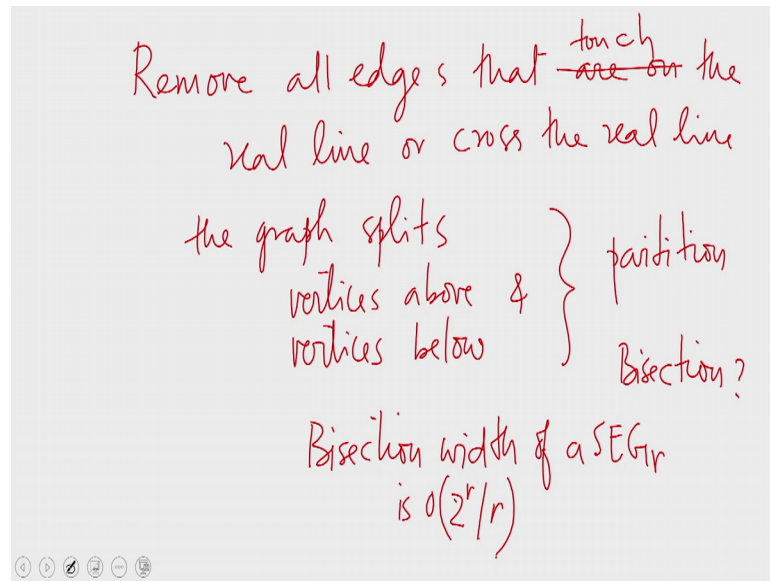 Remove all edges that ~~are on~~ touch the
real line or cross the real line
the graph splits
vertices above &
vertices below
partition
Bisection?
Bisection width of a SEGr
is O(2^r/r)